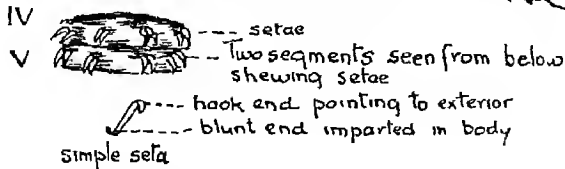 IV
setae
V
Two segments seen from below
shewing setae
hook end pointing to exterior
blunt end imparted in body
simple seta